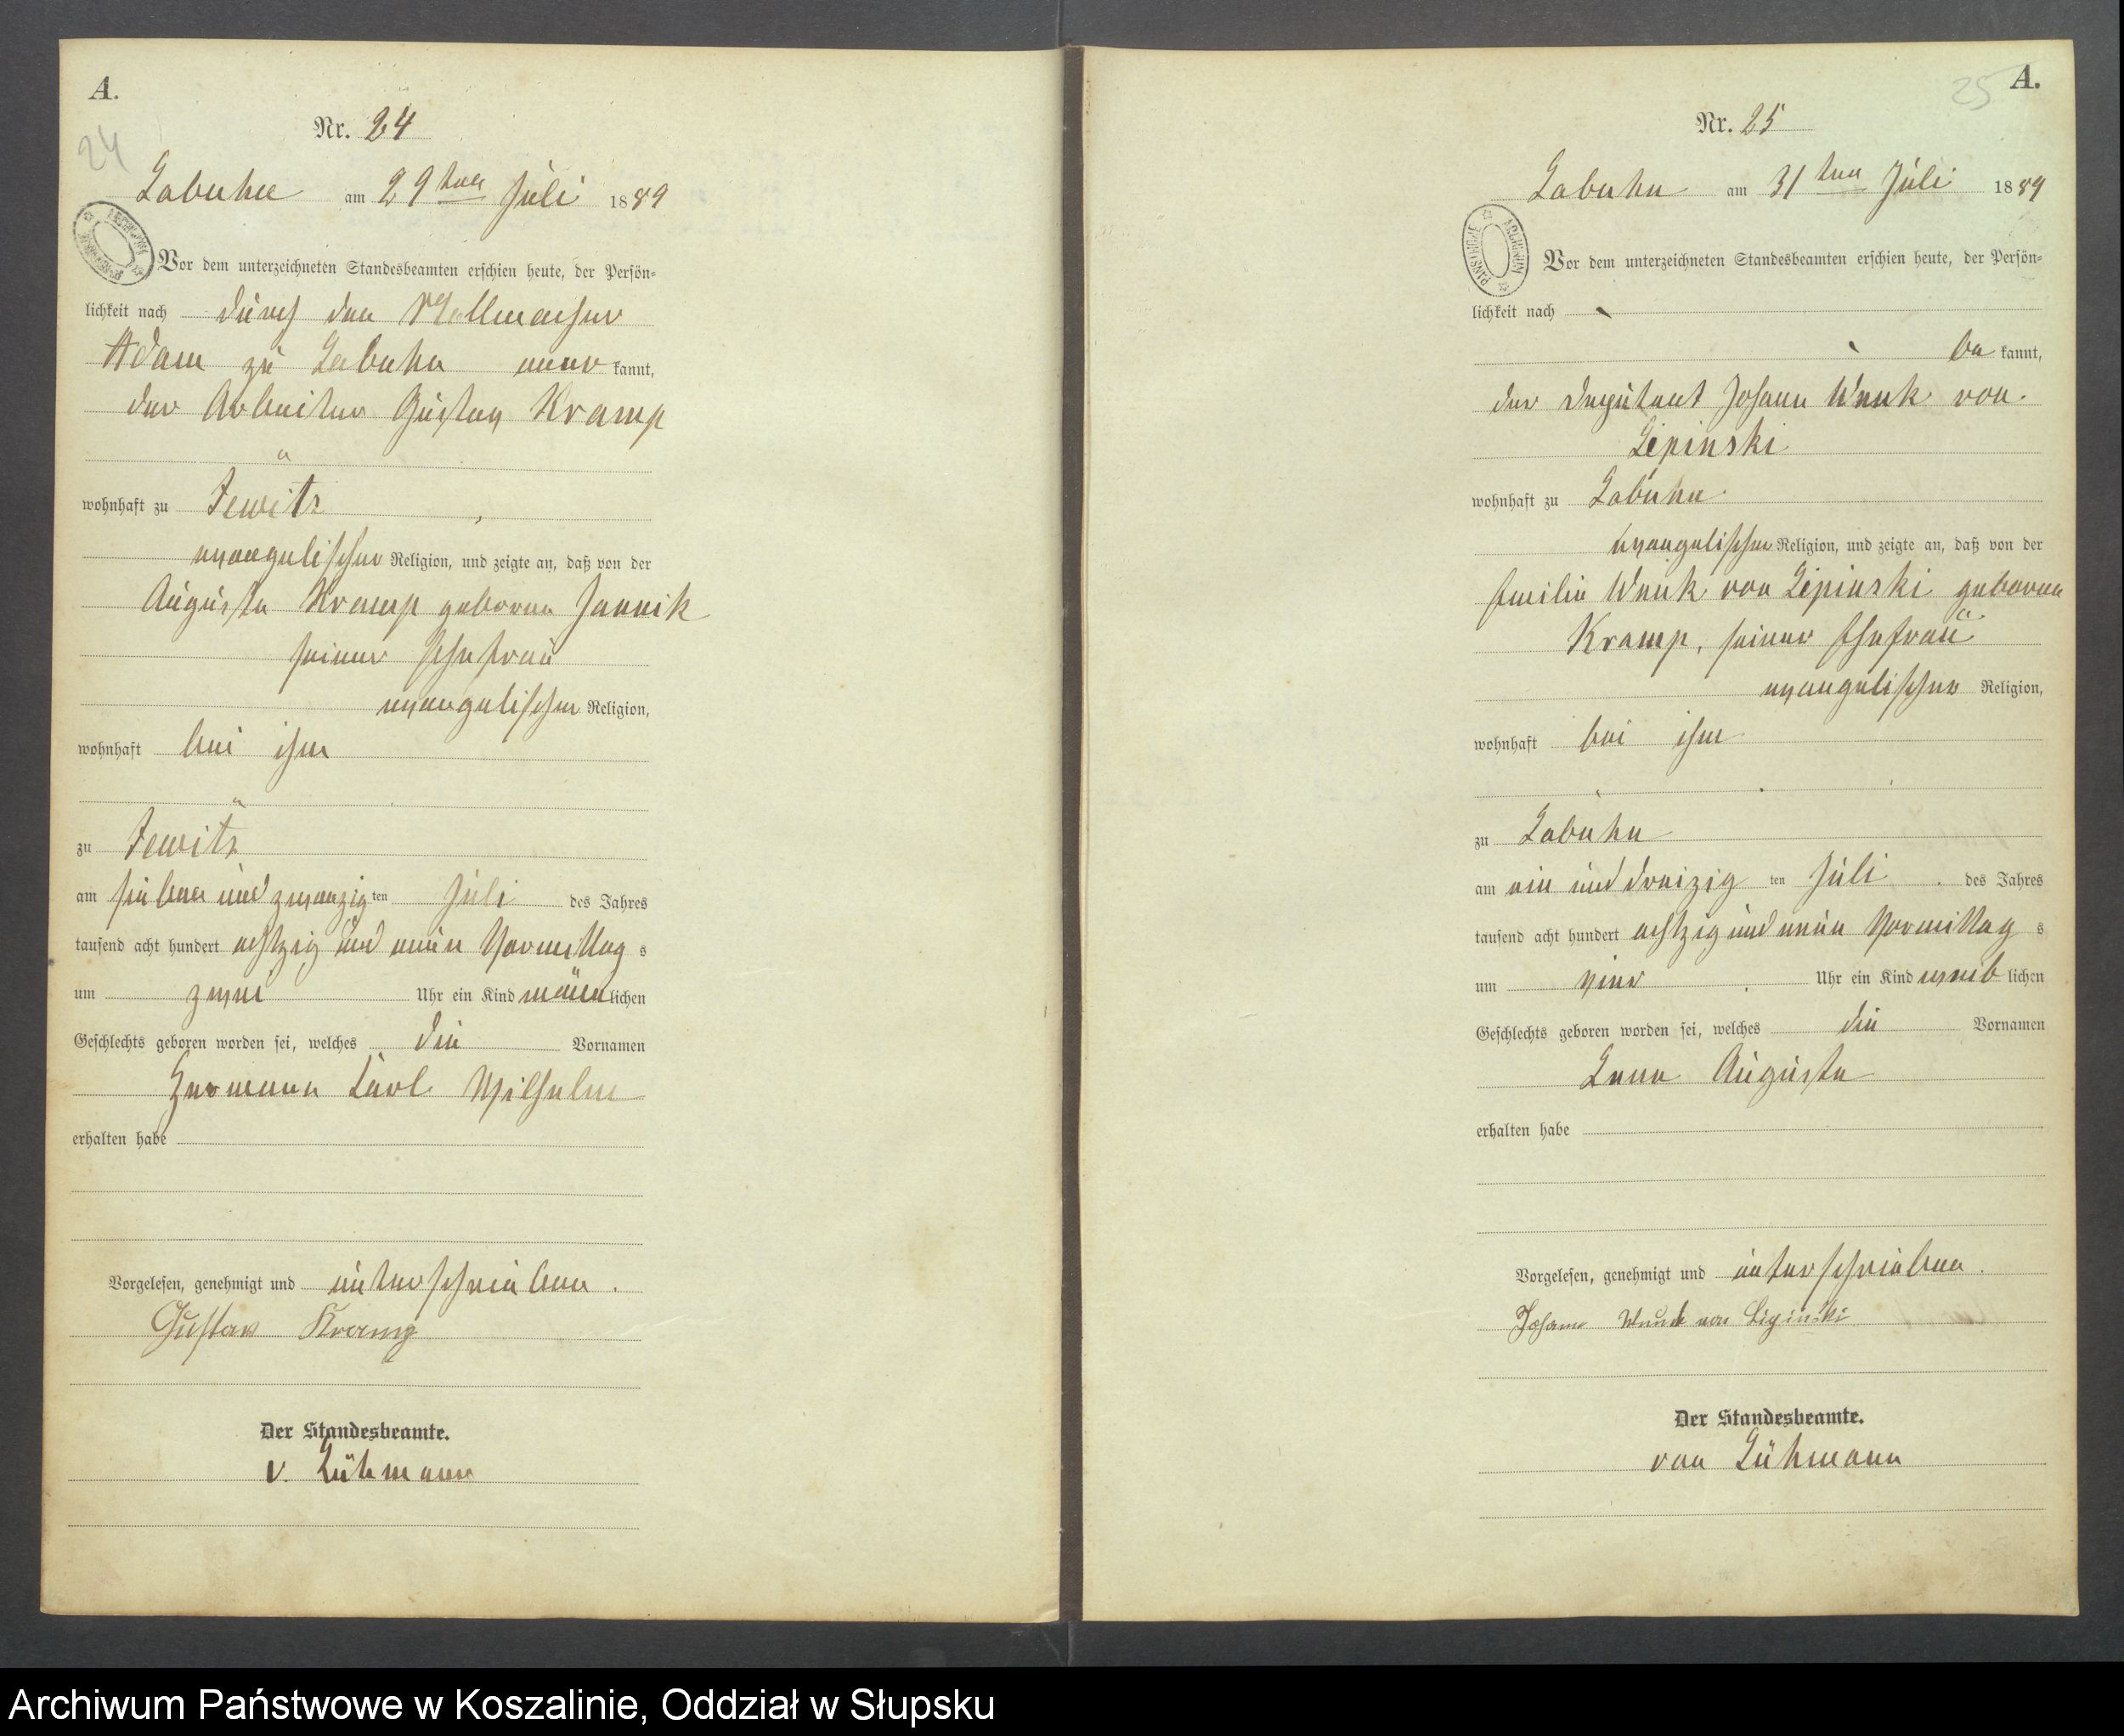 A.
24
Nr. 24
Labuhn am 29ten Juli 1889
Vor dem unterzeichneten Standesbeamten erschien heute, der Persön=
lichkeit nach durch den
Adam zu Labuhn aner kannt,
der Arbeiter Gustav Kramp
wohnhaft zu Jewitz
evangelischer Religion, und zeigte an, daß von der
Auguste Kramp geborene Jannik
seiner Ehefrau
evangelischer Religion,
wohnhaft bei ihm
zu Jewitz
am sieben und zwanzig ten Juli des Jahres
tausend acht hundert achtzig und neun Vormittag s
um zwei Uhr ein Kind männ lichen
Geschlechts geboren worden sei, welches die Vornamen
Hermann Carl Wilhelm
erhalten habe
Vorgelesen, genehmigt und unterschrieben.
Gustav Kramp
Der Standesbeamte.
v. Lühmann
25
A.
Nr. 25
Labuhn am 31ten Juli 1889
Vor dem unterzeichneten Standesbeamten erschien heute, der Persön=
lichkeit nach
be kannt,
der Deputant Johann Wnuk von
Lipinski
wohnhaft zu Labuhn
evangelischer Religion, und zeigte an, daß von der
Emilie Wnuk von Lipinski geborene
Kramp, seiner Ehefrau
evangelischer Religion,
wohnhaft bei ihm
zu Labuhn
am ein und dreizig ten Juli des Jahres
tausend acht hundert achtzig und neun Vormittag s
um vier Uhr ein Kind weib lichen
Geschlechts geboren worden sei, welches die Vornamen
Auguste
erhalten habe
Vorgelesen, genehmigt und unterschrieben.
Johann Wnuk von Lipinski
Der Standesbeamte.
von Lühmann
Archiwum Państwowe w Koszalinie, Oddział w Słupsku